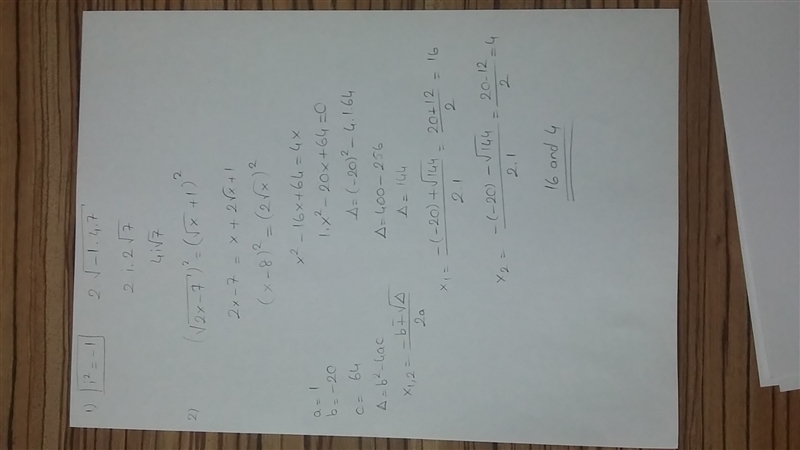 1) i² = -1 2√-1.4.7
2 i.2√7
4i√7
2) (√2x-7)² = (√x + 1)²
2x-7 = x + 2√x + 1
(x-8)² = (2√x)²
x² - 16x + 64 = 4x
1.x² - 20x + 64 = 0
a = 1
b = -20
c = 64
Δ = b² - 4ac
x₁,₂ = -b ± √Δ / 2a
Δ = (-20)² - 4.1.64
Δ = 400 - 256
Δ = 144
x₁ = -(-20) + √144 / 2.1 = 20+12 / 2 = 16
x₂ = -(-20) - √144 / 2.1 = 20-12 / 2 = 4
16 and 4